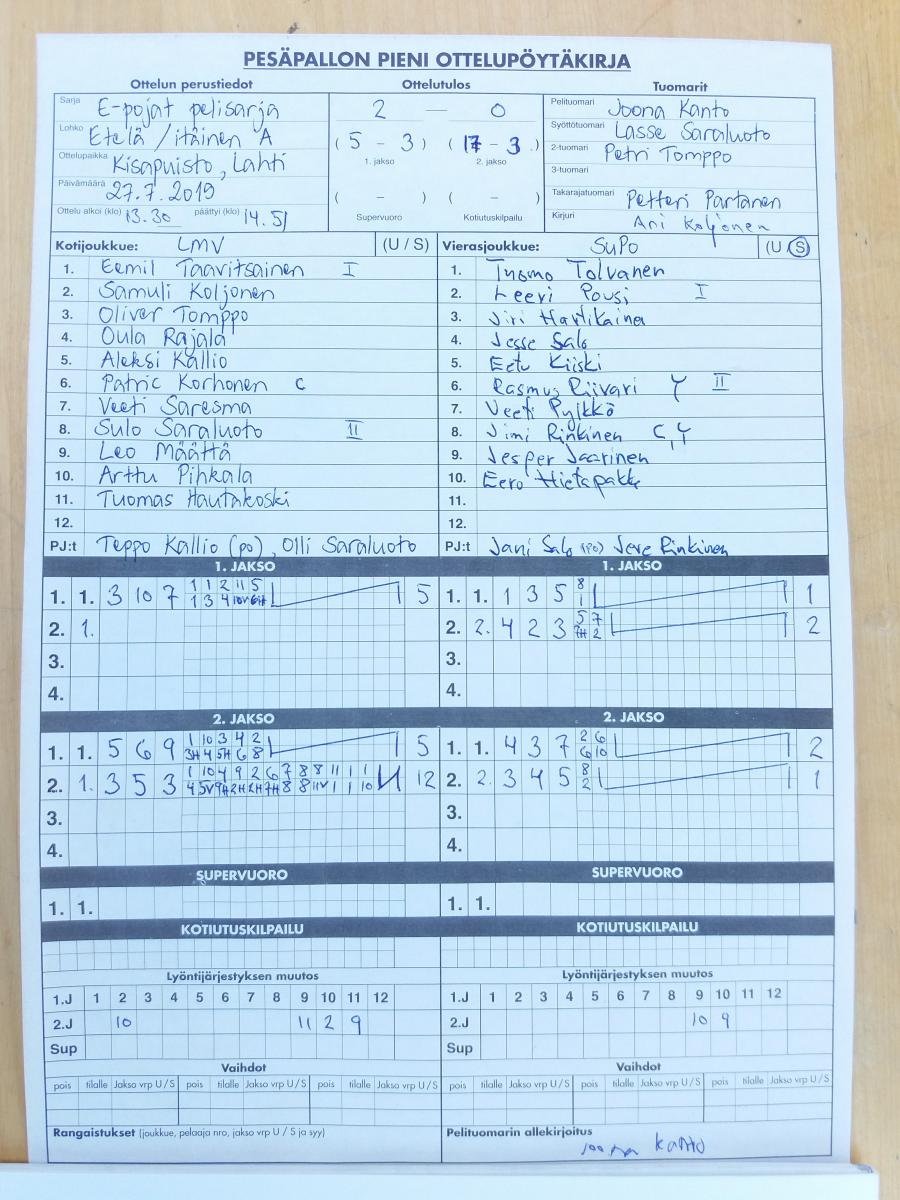 PESÄPALLON PIENI OTTELUPÖYTÄKIRJA
Ottelun perustiedot Ottelutulos Tuomarit
Sarja E-pojat pelisarja
Lohko Etelä / itäinen A
Ottelupaikka Kisapuisto, Lahti
Päivämäärä 27.7.2019
Ottelu alkoi (klo) 13.30 päättyi (klo) 14.51
2 — 0
( 5 - 3 ) ( 17 - 3 )
1. jakso 2. jakso
( - ) ( - )
Supervuoro Kotiutuskilpailu
Pelituomari Joona Kanto
Syöttötuomari Lasse Saraluoto
2-tuomari Petri Tomppo
3-tuomari
Takarajatuomari Petteri Partanen
Kirjuri Ani Koljonen
Kotijoukkue: LMV (U / S)
1. Eemil Taavitsainen I
2. Samuli Koljonen
3. Oliver Tomppo
4. Oula Rajala
5. Aleksi Kallio
6. Patric Korhonen C
7. Veeti Saresma
8. Sulo Saraluoto II
9. Leo Määttä
10. Arttu Pihkala
11. Tuomas Hautakoski
12.
PJ:t Teppo Kallio (po), Olli Saraluoto
Vierasjoukkue: SuPo (U / S)
1. Tuomo Tolvanen
2. Leevi Pousi I
3. Jiri Hartikainen
4. Jesse Salo
5. Eetu Kiiski
6. Rasmus Riivari Y II
7. Veeti Pylkkö
8. Jimi Rinkinen C, Y
9. Jesper Jaarinen
10. Eero Hietapakka
11.
12.
PJ:t Jani Salo (po) Jere Rinkinen
1. JAKSO
1 1 2 11 5
1. 1. 3 10 7 1 3 4 10V 6H 5
2. 1.
3.
4.
1. JAKSO
8
1. 1. 1 3 5 1 1
5 7
2. 2. 4 2 3 7H 2 2
3.
4.
2. JAKSO
1 10 3 4 2
1. 1. 5 6 9 3H 4 5H 6 8 5
1 10 4 9 2 6 7 8 8 11 1 1
2. 1. 3 5 3 4 5V 9H 2H 2H 7H 8 8 11V 1 1 10 12
3.
4.
2. JAKSO
2 6
1. 1. 4 3 7 6 10 2
8
2. 2. 3 4 5 2 1
3.
4.
SUPERVUORO
1. 1.
SUPERVUORO
1. 1.
KOTIUTUSKILPAILU
KOTIUTUSKILPAILU
Lyöntijärjestyksen muutos
1.J 1 2 3 4 5 6 7 8 9 10 11 12
2.J 10 11 2 9
Sup
Lyöntijärjestyksen muutos
1.J 1 2 3 4 5 6 7 8 9 10 11 12
2.J 10 9
Sup
Vaihdot
pois tilalle Jakso vrp U / S pois tilalle Jakso vrp U / S pois tilalle Jakso vrp U / S
Vaihdot
pois tilalle Jakso vrp U / S pois tilalle Jakso vrp U / S pois tilalle Jakso vrp U / S
Rangaistukset (joukkue, pelaaja nro, jakso vrp U / S ja syy)
Pelituomarin allekirjoitus
Joona Kanto